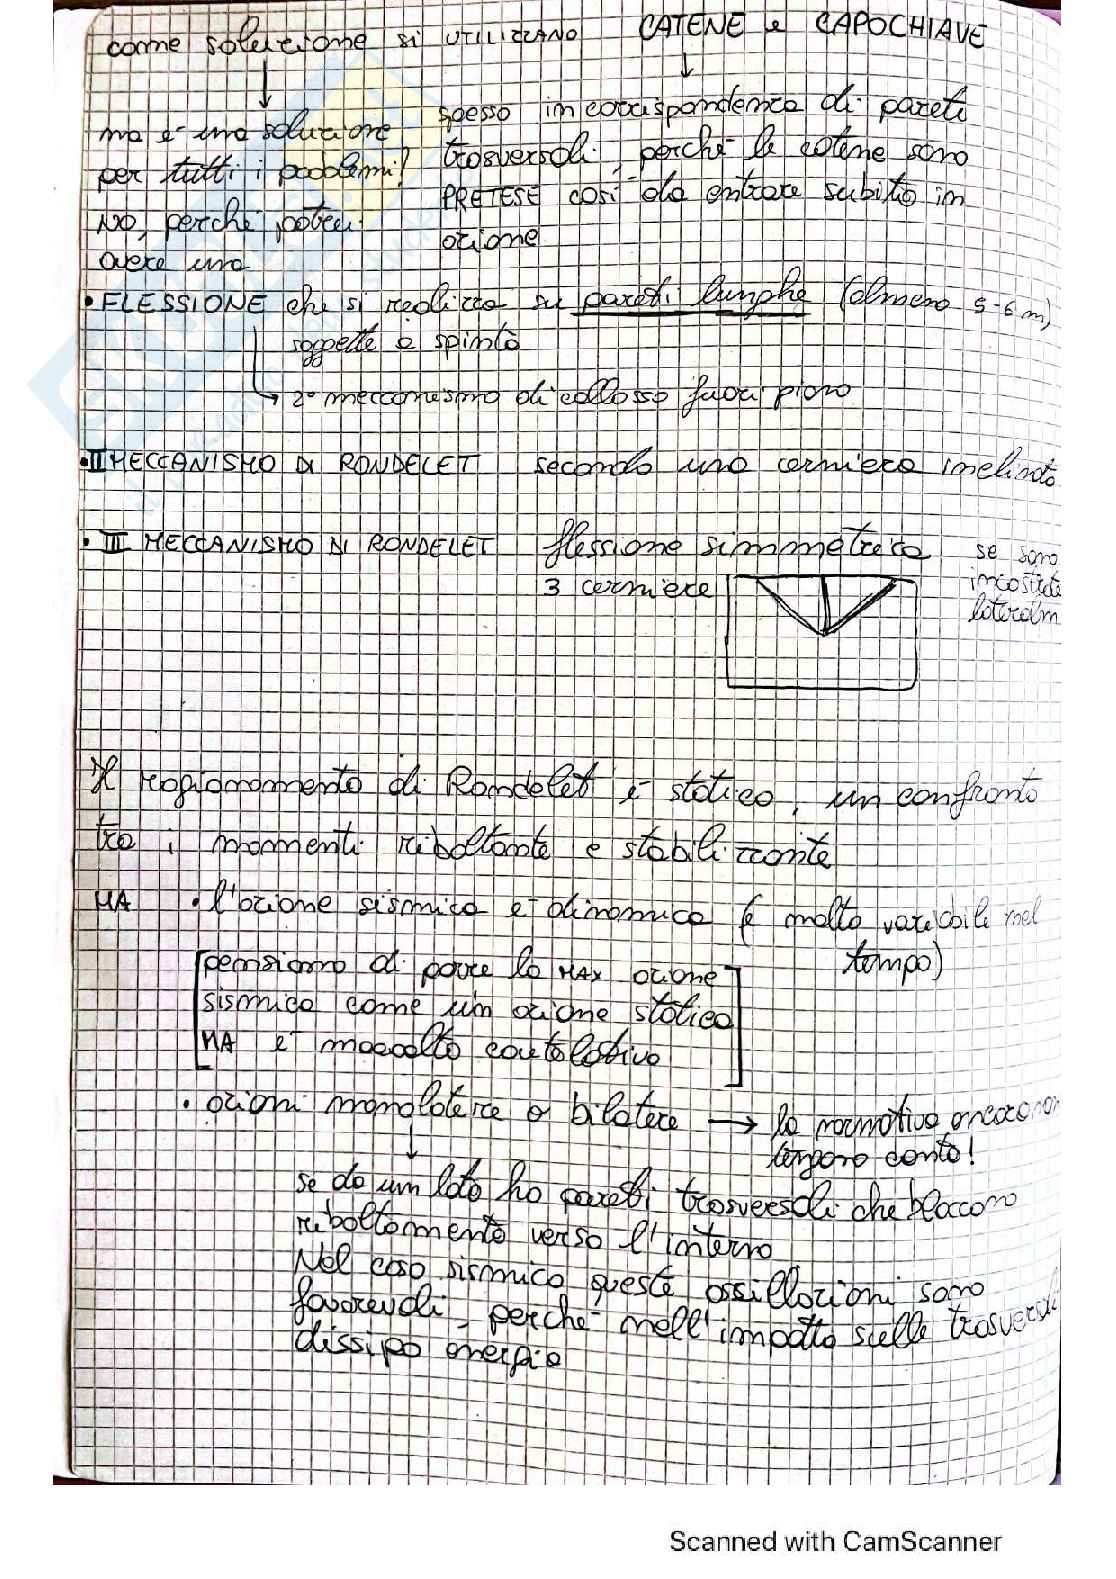 come soluzione si UTILIZZANO CATENE e CAPOCHIAVE
ma è una soluzione
per tutti i problemi?
NO, perché potrei
avere una
spesso in corrispondenza di pareti
trasversali, perché le catene sono
PRETESE così da entrare subito in
azione
• FLESSIONE che si realizza su pareti lunghe (almeno 5-6 m)
soggette a spinta
2° meccanismo di collasso fuori piano
• II MECCANISMO DI RONDELET secondo una cerniera inclinata
• III MECCANISMO DI RONDELET flessione simmetrica
3 cerniere
se sono
incastrate
lateralm
Il ragionamento di Rondelet è statico, un confronto
tra i momenti ribaltante e stabilizzante
MA • l'azione sismica è dinamica (è molto variabile nel
tempo)
[pensiamo di porre la MAX azione
sismica come un azione statica
MA è molto cautelativo]
• azioni monolatere o bilatere → la normativa ancora non
tengono conto!
se da un lato ho pareti trasversali che bloccano
ribaltamento verso l'interno
Nel caso sismico queste ossillazioni sono
favorevoli, perché nell'impatto sulle trasversali
dissipo energia
Scanned with CamScanner